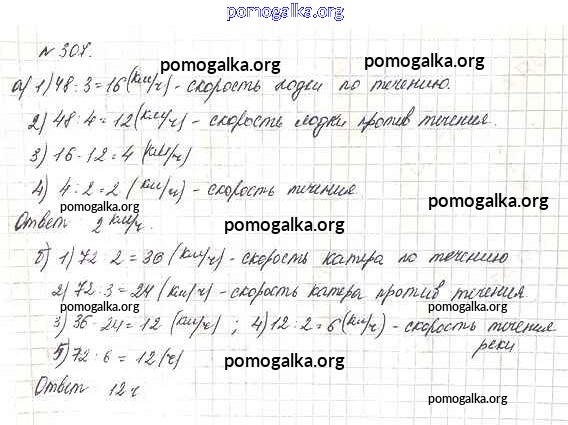 pomogalka.org
№ 307.
pomogalka.org
а) 1) 48 : 3 = 16 (км/ч) - скорость лодки по течению.
pomogalka.org pomogalka.org
2) 48 : 4 = 12 (км/ч) - скорость лодки против течения.
3) 16 - 12 = 4 (км/ч)
pomogalka.org
4) 4 : 2 = 2 (км/ч) - скорость течения
pomogalka.org pomogalka.org
Ответ 2 км/ч.
pomogalka.org
б) 1) 72 : 2 = 36 (км/ч) - скорость катера по течению
2) 72 : 3 = 24 (км/ч) - скорость катера против течения
pomogalka.org pomogalka.org
3) 36 - 24 = 12 (км/ч) ; 4) 12 : 2 = 6 (км/ч) - скорость течения
реки
5) 72 : 6 = 12 (ч)
pomogalka.org
Ответ 12 ч
pomogalka.org